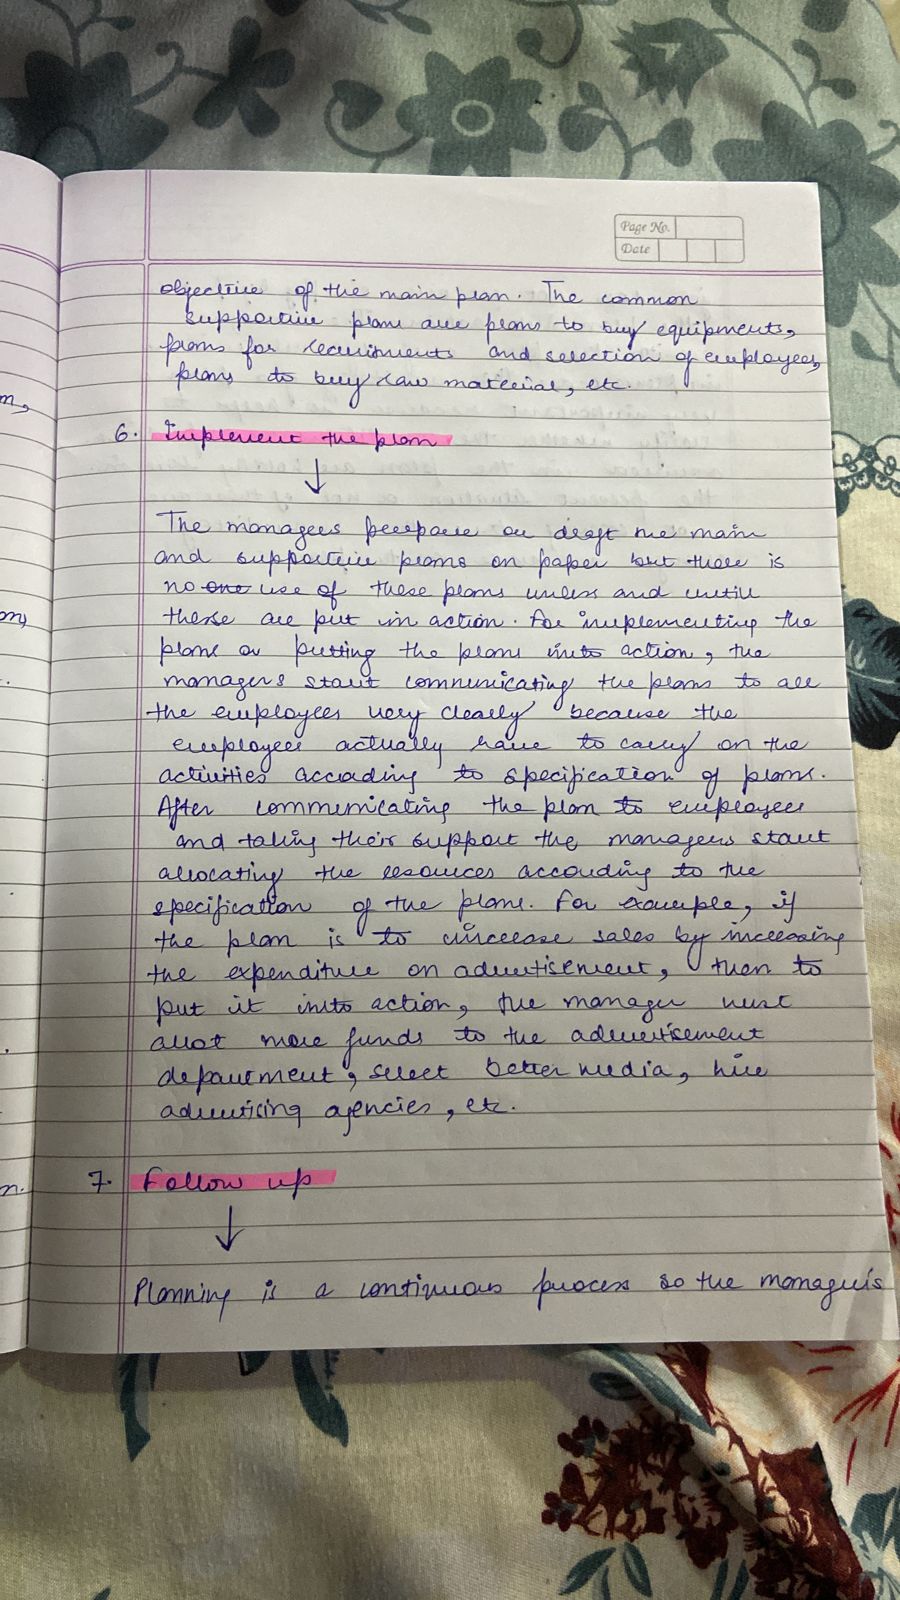 Page No.
Date
objective of the main plan. The common
supportive plans are plans to buy equipments,
plans for recruitments and selection of employees,
plans to buy raw material, etc.
m,
6. Implement the plan
↓
The managers prepare or draft the main
and supportive plans on paper but there is
no one use of these plans unless and untill
these are put in action. For implementing the
plans or putting the plans into action, the
managers start communicating the plans to all
the employees very clearly because the
employees actually have to carry on the
activities according to specification of plans.
After communicating the plan to employees
and taking their support the managers start
allocating the resources according to the
specification of the plans. For example, if
the plan is to increase sales by increasing
the expenditure on advertisement, then to
put it into action, the manager must
allot more funds to the advertisement
department, select better media, hire
advertising agencies, etc.
7. Follow up
n.
↓
Planning is a continuous process so the manager's